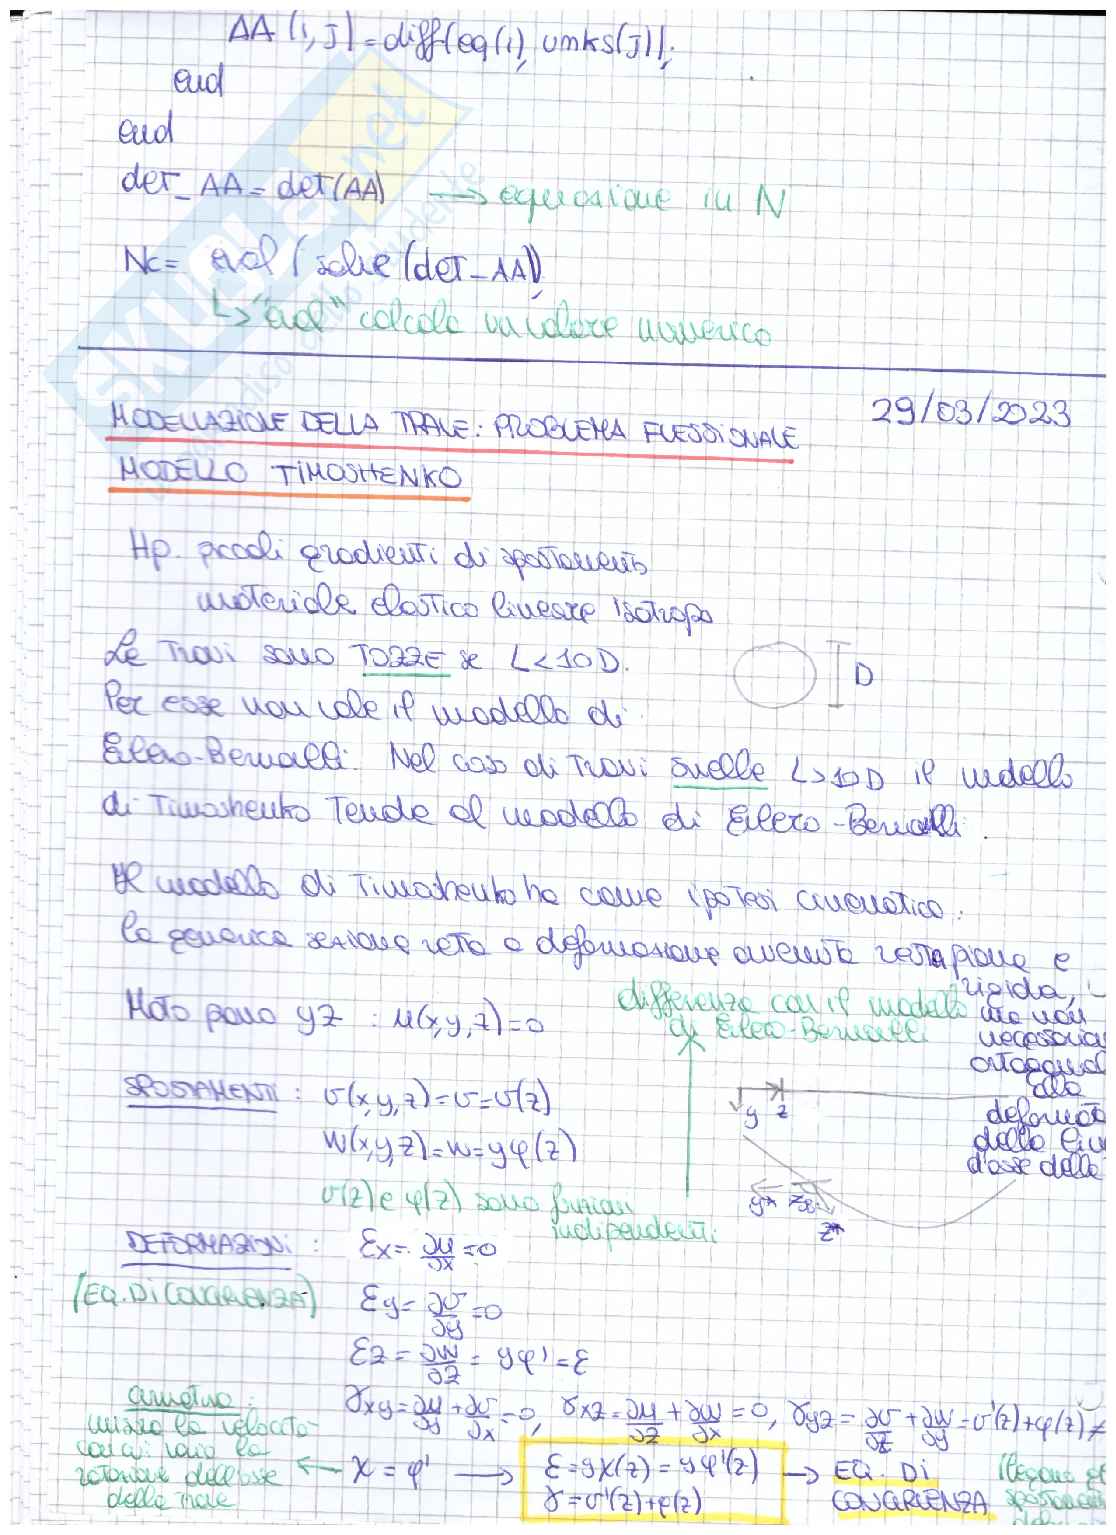 AA(i,j)=diff(eq(i), umks(j));
end
end
det_AA = det(AA) → equazione in N
Nc = eval(solve(det_AA));
↳ "eval" calcola un valore numerico
MODELLAZIONE DELLA TRAVE: PROBLEMA FLESSIONALE 29/03/2023
MODELLO TIMOSHENKO
Hp. piccoli gradienti di spostamento
materiale elastico lineare isotropo
Le travi sono TOZZE se L<10D. D
Per esse non vale il modello di
Eulero-Bernoulli. Nel caso di travi snelle L>10D il modello
di Timoshenko tende al modello di Eulero-Bernoulli.
Il modello di Timoshenko ha come ipotesi cinematica:
la generica sezione retta a deformazione avvenuta resta piana e
rigida,
ma non
necessaria
ortogonal
alla
deformata
della lin
d'asse della
differenza con il modello
di Eulero-Bernoulli
Moto piano yz : u(x,y,z)=0
SPOSTAMENTI : v(x,y,z)=v=v(z)
w(x,y,z)=w=yφ(z)
y z
y* z
z*
v(z) e φ(z) sono funzioni
indipendenti
DEFORMAZIONI : εx = ∂u/∂x = 0
(EQ. DI CONGRUENZA) εy = ∂v/∂y = 0
εz = ∂w/∂z = yφ' = ε
γxy = ∂u/∂y + ∂v/∂x = 0, γxz = ∂u/∂z + ∂w/∂x = 0, γyz = ∂v/∂z + ∂w/∂y = v'(z)+φ(z) ≠
curvatura :
misura la velocità
con cui varia la
rotazione dell'asse
della trave
← χ = φ' → ε = yχ(z) = yφ'(z) → EQ. DI
γ = v'(z)+φ(z) CONGRUENZA
(legano gl
spostamen